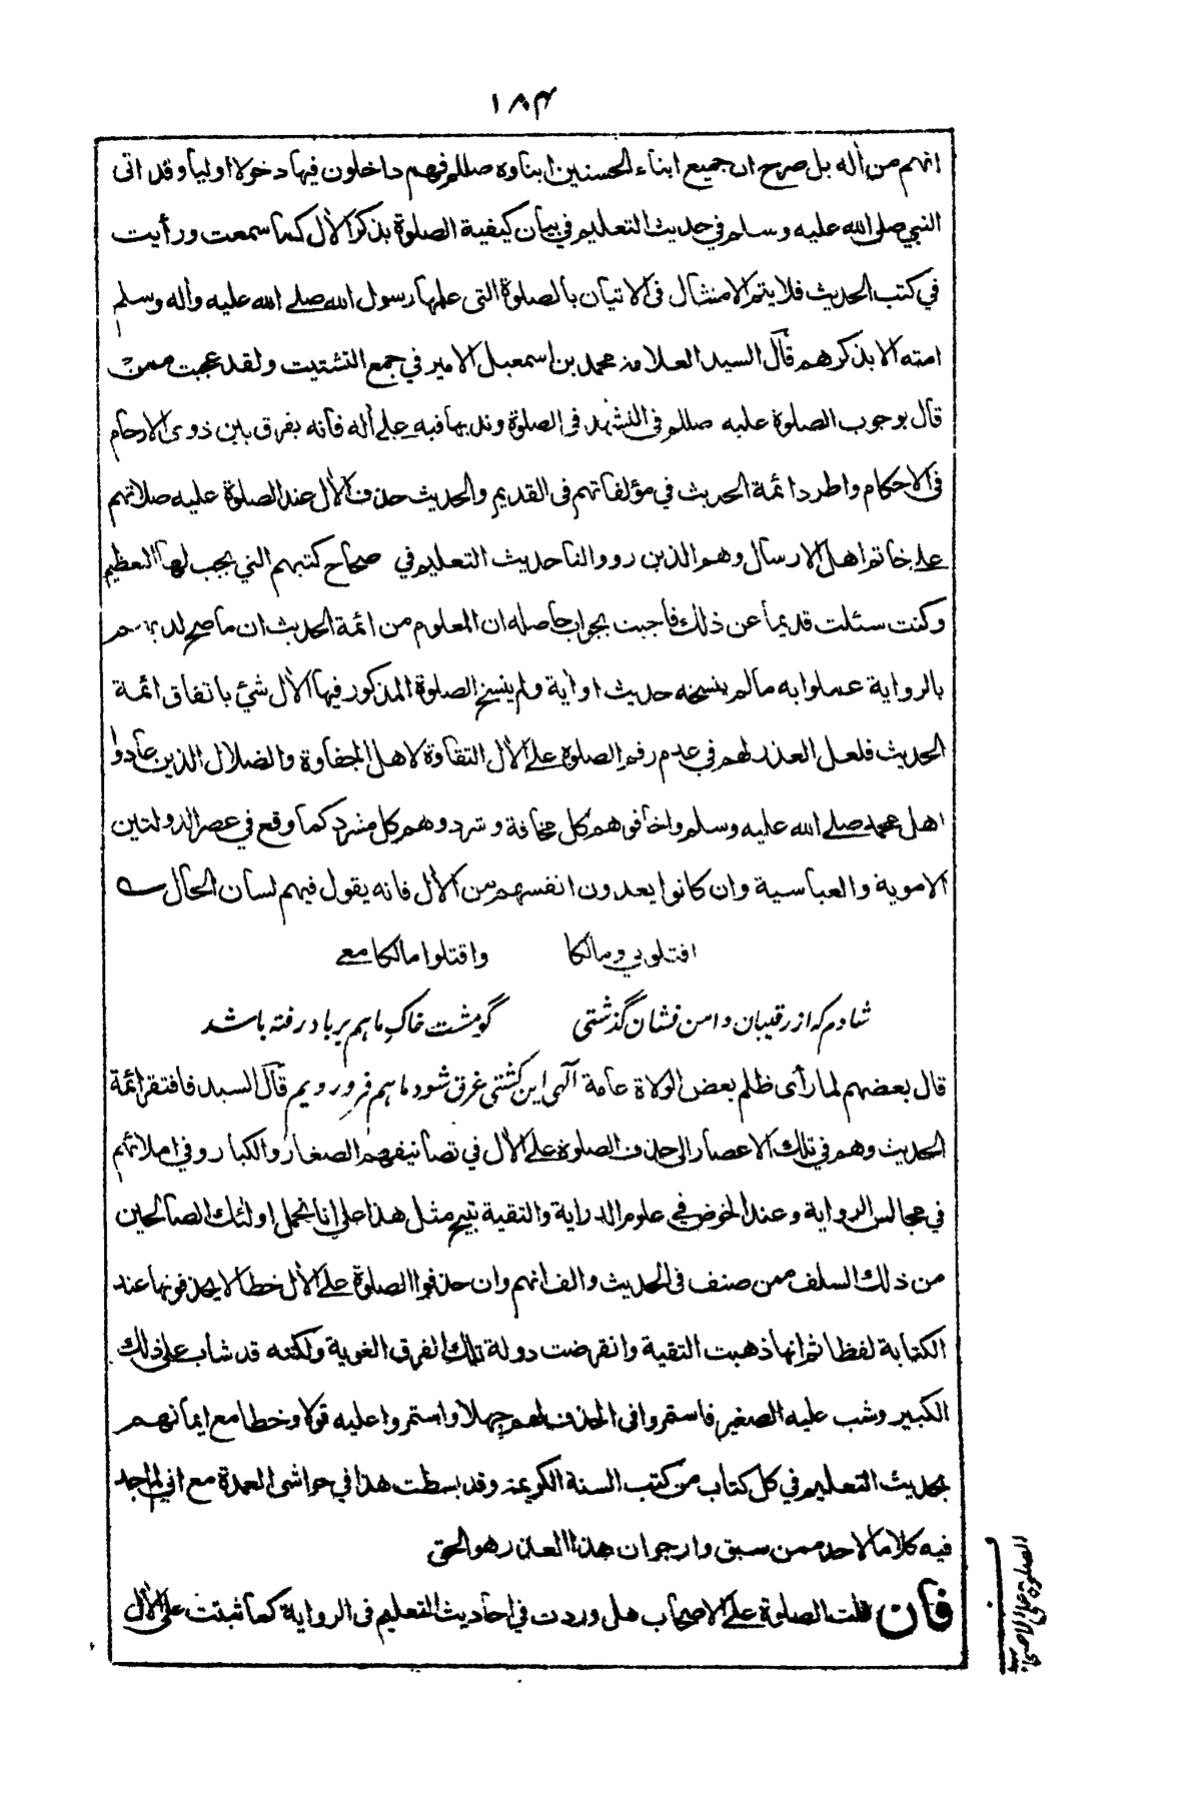 ١٨٤
انهم من أله بل صرح ان جميع ابناء الحسنين ابناوه صللم فهم داخلون فيها دخولا اوليا وقد اتى
النبي صلى الله عليه وسلم في حديث التعليم في بيان كيفية الصلوة بذكر الأل كما سمعت ورأيت
في كتب الحديث فلا يتم الامتثال فى الاتيان بالصلوة التى علمها رسول الله صلے الله عليه وأله وسلم
امته الا بذكرهم قال السيد العلامة محمد بن اسمعيل الامير في جمع التشتيت ولقد عجبت ممن
قال بوجوب الصلوة عليه صللم فى التشهد فى الصلوة وندبها فيه علے أله فانه يفرق بين ذوى الارحام
فى الاحكام واطرد ائمة الحديث في مؤلفاتهم فى القديم والحديث حذف الأل عند الصلوة عليه صلاتهم
علے خاتم اهل الارسال وهم الذين رووا لنا حديث التعليم في صحاح كتبهم التي يجب لها التعظيم
وكنت سئلت قديما عن ذلك فاجبت بجواب حاصله ان المعلوم من ائمة الحديث ان ما صح لديهم
بالرواية عملوا به مالم ينسخه حديث او أية ولم ينسخ الصلوة المذكور فيها الأل شئ باتفاق ائمة
الحديث فلعل العذر لهم في عدم رقم الصلوة علے الأل التقاوة لاهل الجفاوة والضلال الذين عادوا
اهل محمد صلے الله عليه وسلم واخافوهم كل مخافة وشردوهم كل مشرد كما وقع في عصر الدولتين
الاموية والعباسية وان كانوا يعدون انفسهم من الأل فانه يقول فيهم لسان الحال
اقتلوني ومالكا واقتلوا مالكا معے
شادم كه از رقيبان دامن فشان گذشتى گو مشت خاك ما هم بر باد رفته باشد
قال بعضهم لما رأى ظلم بعض الولاة عامة الٓهى اين كشتى غرق شود ما هم فرو رويم قال السيد فافتقر ائمة
الحديث وهم في تلك الاعصار الى حذف الصلوة علے الأل في تصانيفهم الصغار والكبار وفى املائهم
في مجالس الرواية وعند الخوض في علوم الدراية والتقية تبيح مثل هذا على انا نحمل اولئك الصالحين
من ذلك السلف ممن صنف فى الحديث والف انهم وان حذفوا الصلوة علے الأل خطا لا يحذفونها عند
الكتابة لفظا ثم انها ذهبت التقية وانقرضت دولة تلك الفرق الغوية ولكنه قد شاب على ذلك
الكبير وشب عليه الصغير فاستمروا فى الحذف لهم جهلا واستمروا عليه قولا وخطا مع ايمانهم
بحديث التعليم في كل كتاب من كتب السنة الكريمة وقد بسطت هذا في حواشى العمدة مع اني لم اجد
فيه كلاما لاحد ممن سبق وارجو ان هذا العذر هو الحق
فان قلت الصلوة علے الاصحاب هل وردت في احاديث التعليم فى الرواية كما ثبتت على الأل